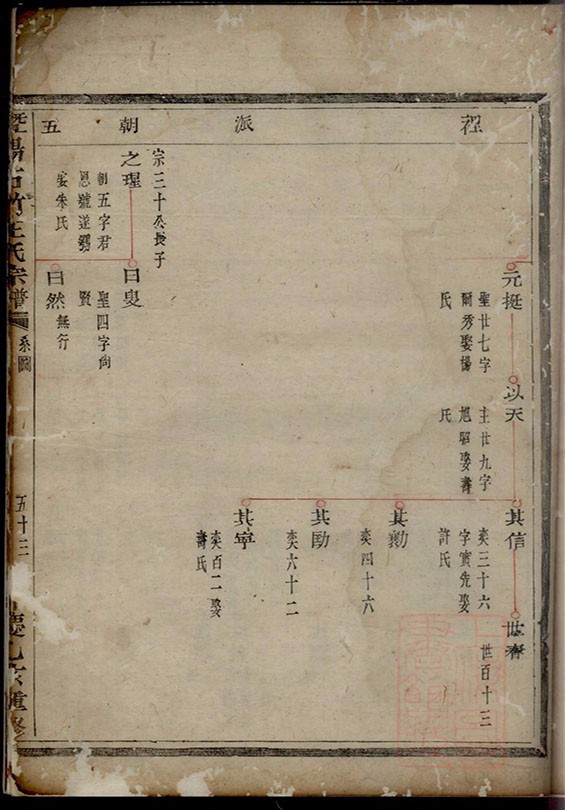 裎派朝五
元挺
聖廿七字
爾秀娶楊
氏
以天
主廿九字
旭昭娶壽
氏
其信
奕三十六
字實先娶
許氏
世春
世百十三
其勷
奕四十六
其勛
奕六十二
其寧
奕百二娶
壽氏
宗三十公長子
之理
朝五字君
恩號遂鐸
娶朱氏
曰叟
聖四字尙
賢
曰然
無行
暨陽古竹王氏宗譜
系圖
五十三
慶乙亥重修